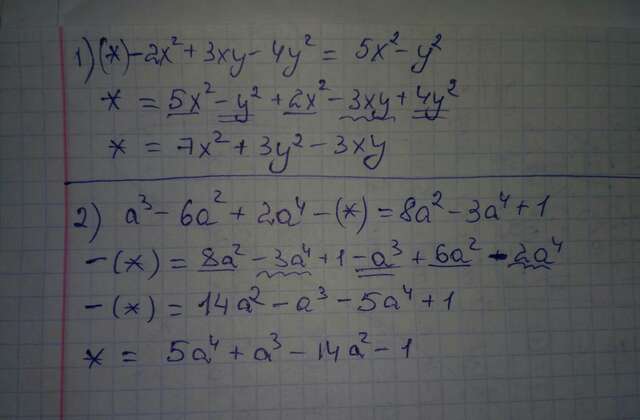 1) (*) - 2x² + 3xy - 4y² = 5x² - y²
* = 5x² - y² + 2x² - 3xy + 4y²
* = 7x² + 3y² - 3xy
2) a³ - 6a² + 2a⁴ - (*) = 8a² - 3a⁴ + 1
- (*) = 8a² - 3a⁴ + 1 - a³ + 6a² - 2a⁴
- (*) = 14a² - a³ - 5a⁴ + 1
* = 5a⁴ + a³ - 14a² - 1